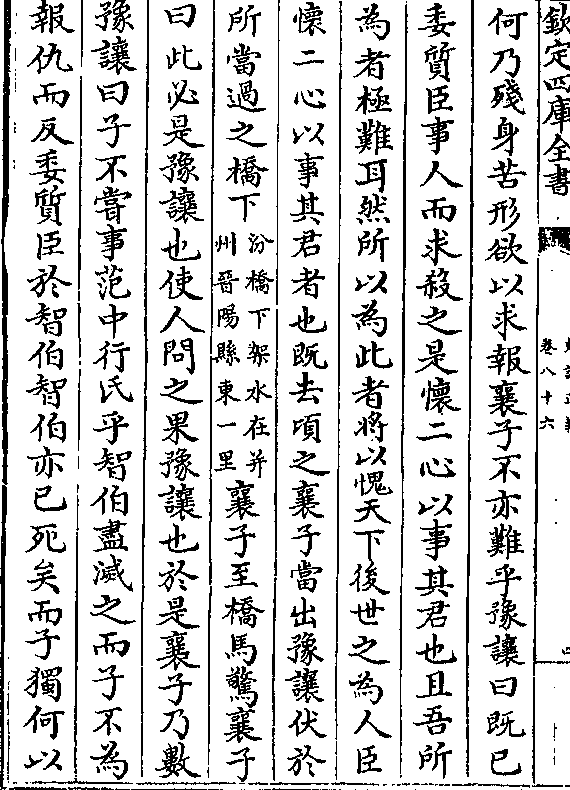 欽定四庫全書
卷八十六
何乃殘身苦形欲以求報襄子不亦難乎豫讓曰既已
委質臣事人而求殺之是懷二心以事其君也且吾所
為者極難耳然所以為此者將以愧天下後世之為人臣
懷二心以事其君者也既去頃之襄子當出豫讓伏於
所當過之橋下汾橋下架水在并州晉陽縣東一里襄子至橋馬驚襄子
曰此必是豫讓也使人問之果豫讓也於是襄子乃數
豫讓曰子不嘗事范中行氏乎智伯盡滅之而子不為
報仇而反委質臣於智伯智伯亦已死矣而子獨何以